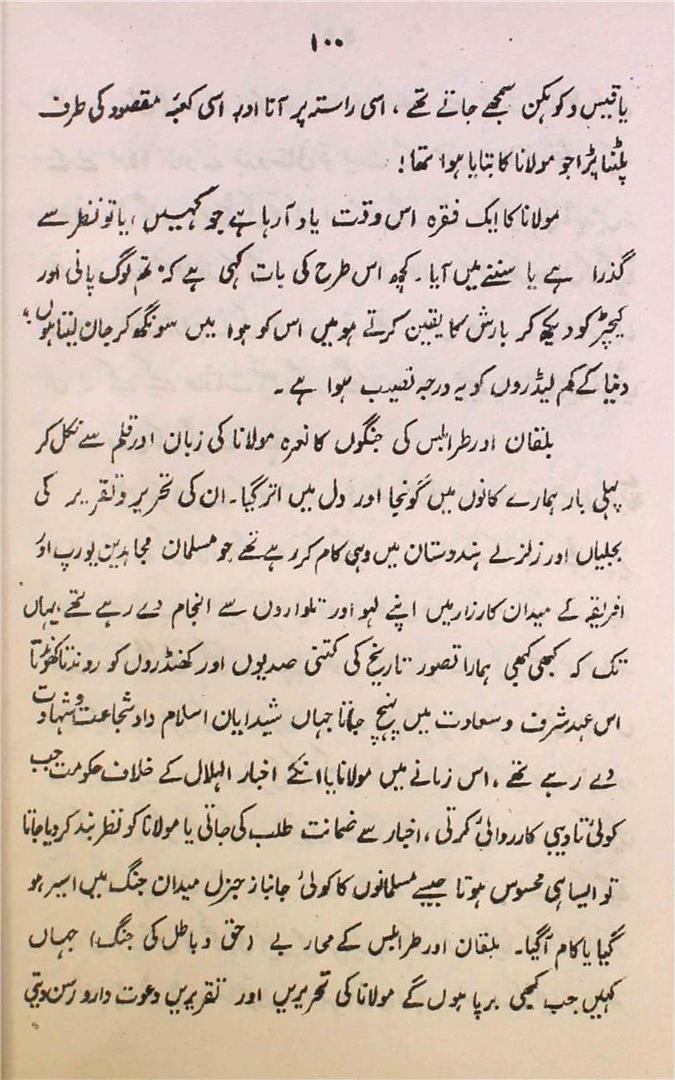 ۱۰۰
یا قیس و کوہکن سمجھے جاتے تھے، اسی راستہ پر آنا اور اسی کعبۂ مقصود کی طرف
پلٹنا پڑا جو مولانا کا بتایا ہوا تھا!
مولانا کا ایک فقرہ اس وقت یاد آرہا ہے جو کہیں، یا تو نظر سے
گذرا ہے یا سننے میں آیا۔ کچھ اس طرح کی بات کہی ہے کہ "تم لوگ پانی اور
کیچڑ کو دیکھ کر بارش کا یقین کرتے ہو میں اس کو ہوا میں سونگھ کر جان لیتا ہوں"
دنیا کے کم لیڈروں کو یہ درجہ نصیب ہوا ہے۔
بلقان اور طرابلس کی جنگوں کا نعرہ مولانا کی زبان اور قلم سے نکل کر
پہلی بار ہمارے کانوں میں گونجا اور دل میں اتر گیا۔ ان کی تحریر و تقریر کی
بجلیاں اور زلزلے ہندوستان میں وہی کام کر رہے تھے جو مسلمان مجاہدین یورپ اور
افریقہ کے میدان کارزار میں اپنے لہو اور تلواروں سے انجام دے رہے تھے، یہاں
تک کہ کبھی کبھی ہمارا تصور تاریخ کی کتنی صدیوں اور کھنڈروں کو روندتا کھوندتا
اس عہد شرف و سعادت میں پہنچ جاتا جہاں شیدایان اسلام داد شجاعت و شہادت
دے رہے تھے، اس زمانے میں مولانا یا انکے اخبار الہلال کے خلاف حکومت جب
کوئی تادیبی کارروائی کرتی، اخبار سے ضمانت طلب کی جاتی یا مولانا کو نظر بند کر دیا جاتا
تو ایسا ہی محسوس ہوتا جیسے مسلمانوں کا کوئی جانباز جنرل میدان جنگ میں اسیر ہو
گیا یا کام آگیا۔ بلقان اور طرابلس کے محاربے (حق و باطل کی جنگ) جہاں
کہیں جب کبھی برپا ہوں گے مولانا کی تحریریں اور تقریریں دعوت دار و رسن دیتی